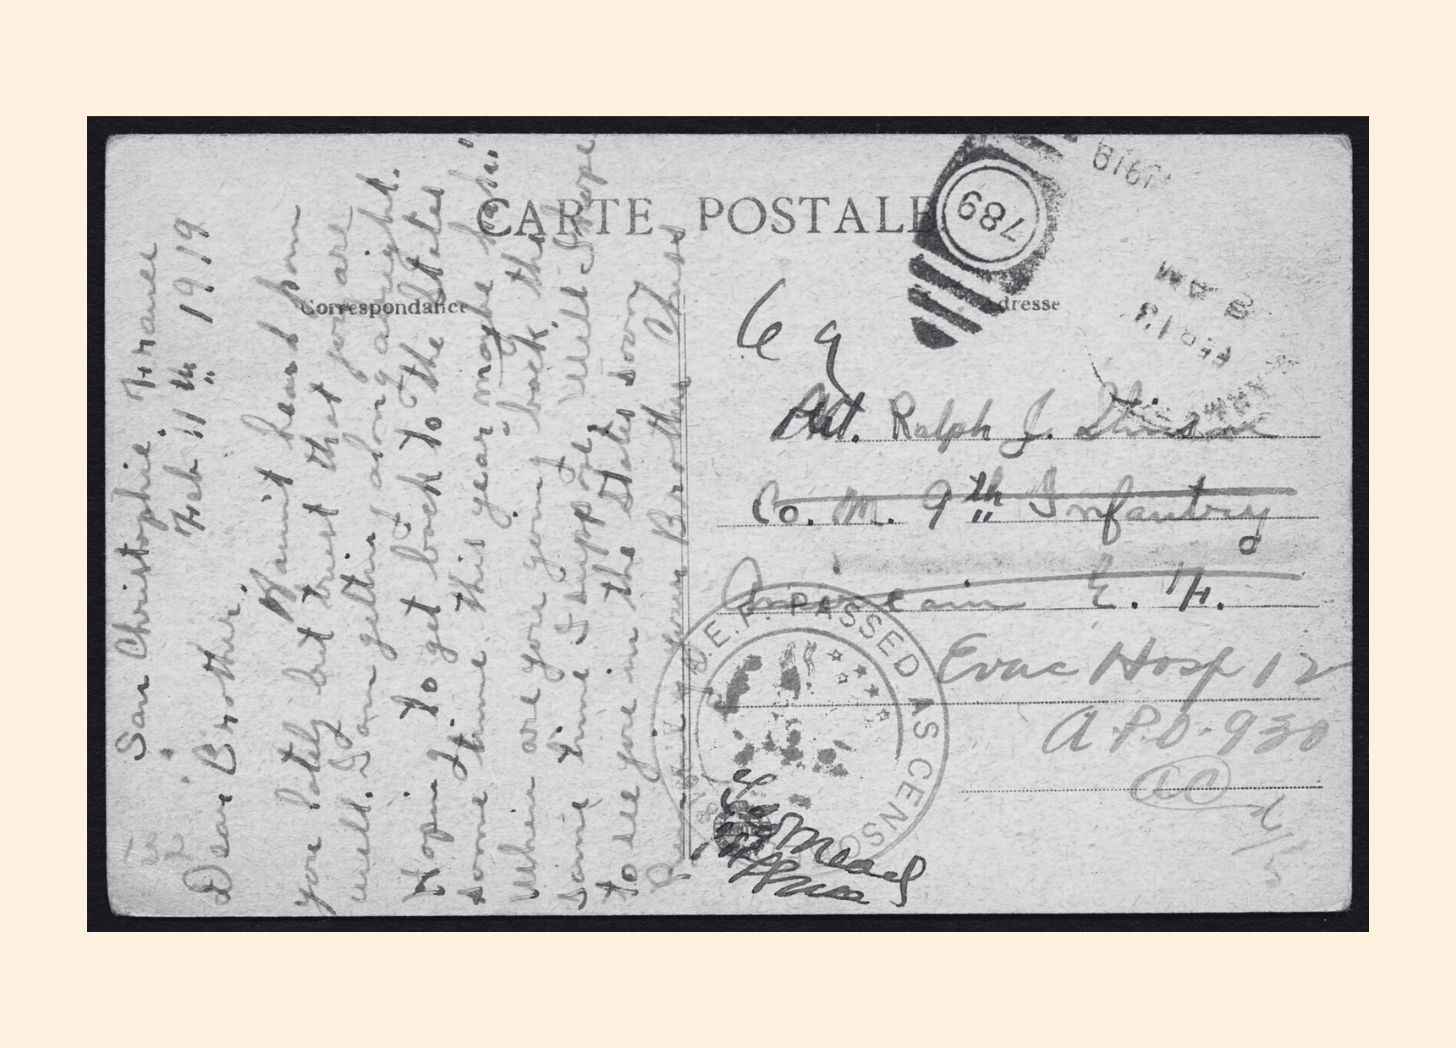 CARTE POSTALE
Correspondance
Adresse
San Christophie France
Feb 11th 1919
Dear Brother,
Havint heard from
you lately but trust that you are
well. I am getting along allright.
Hoping to get back to the States
some time this year maybe July.
When are you going back the
same time I suppose, Well I hope
to see you in the States soon
your Brother
789
1919
FEB 13
9 AM
Pvt. Ralph J.
Co. M. 9th Infantry
E. H.
Evac Hosp 12
A.P.O. 930
A.E.F. PASSED AS CENSORED